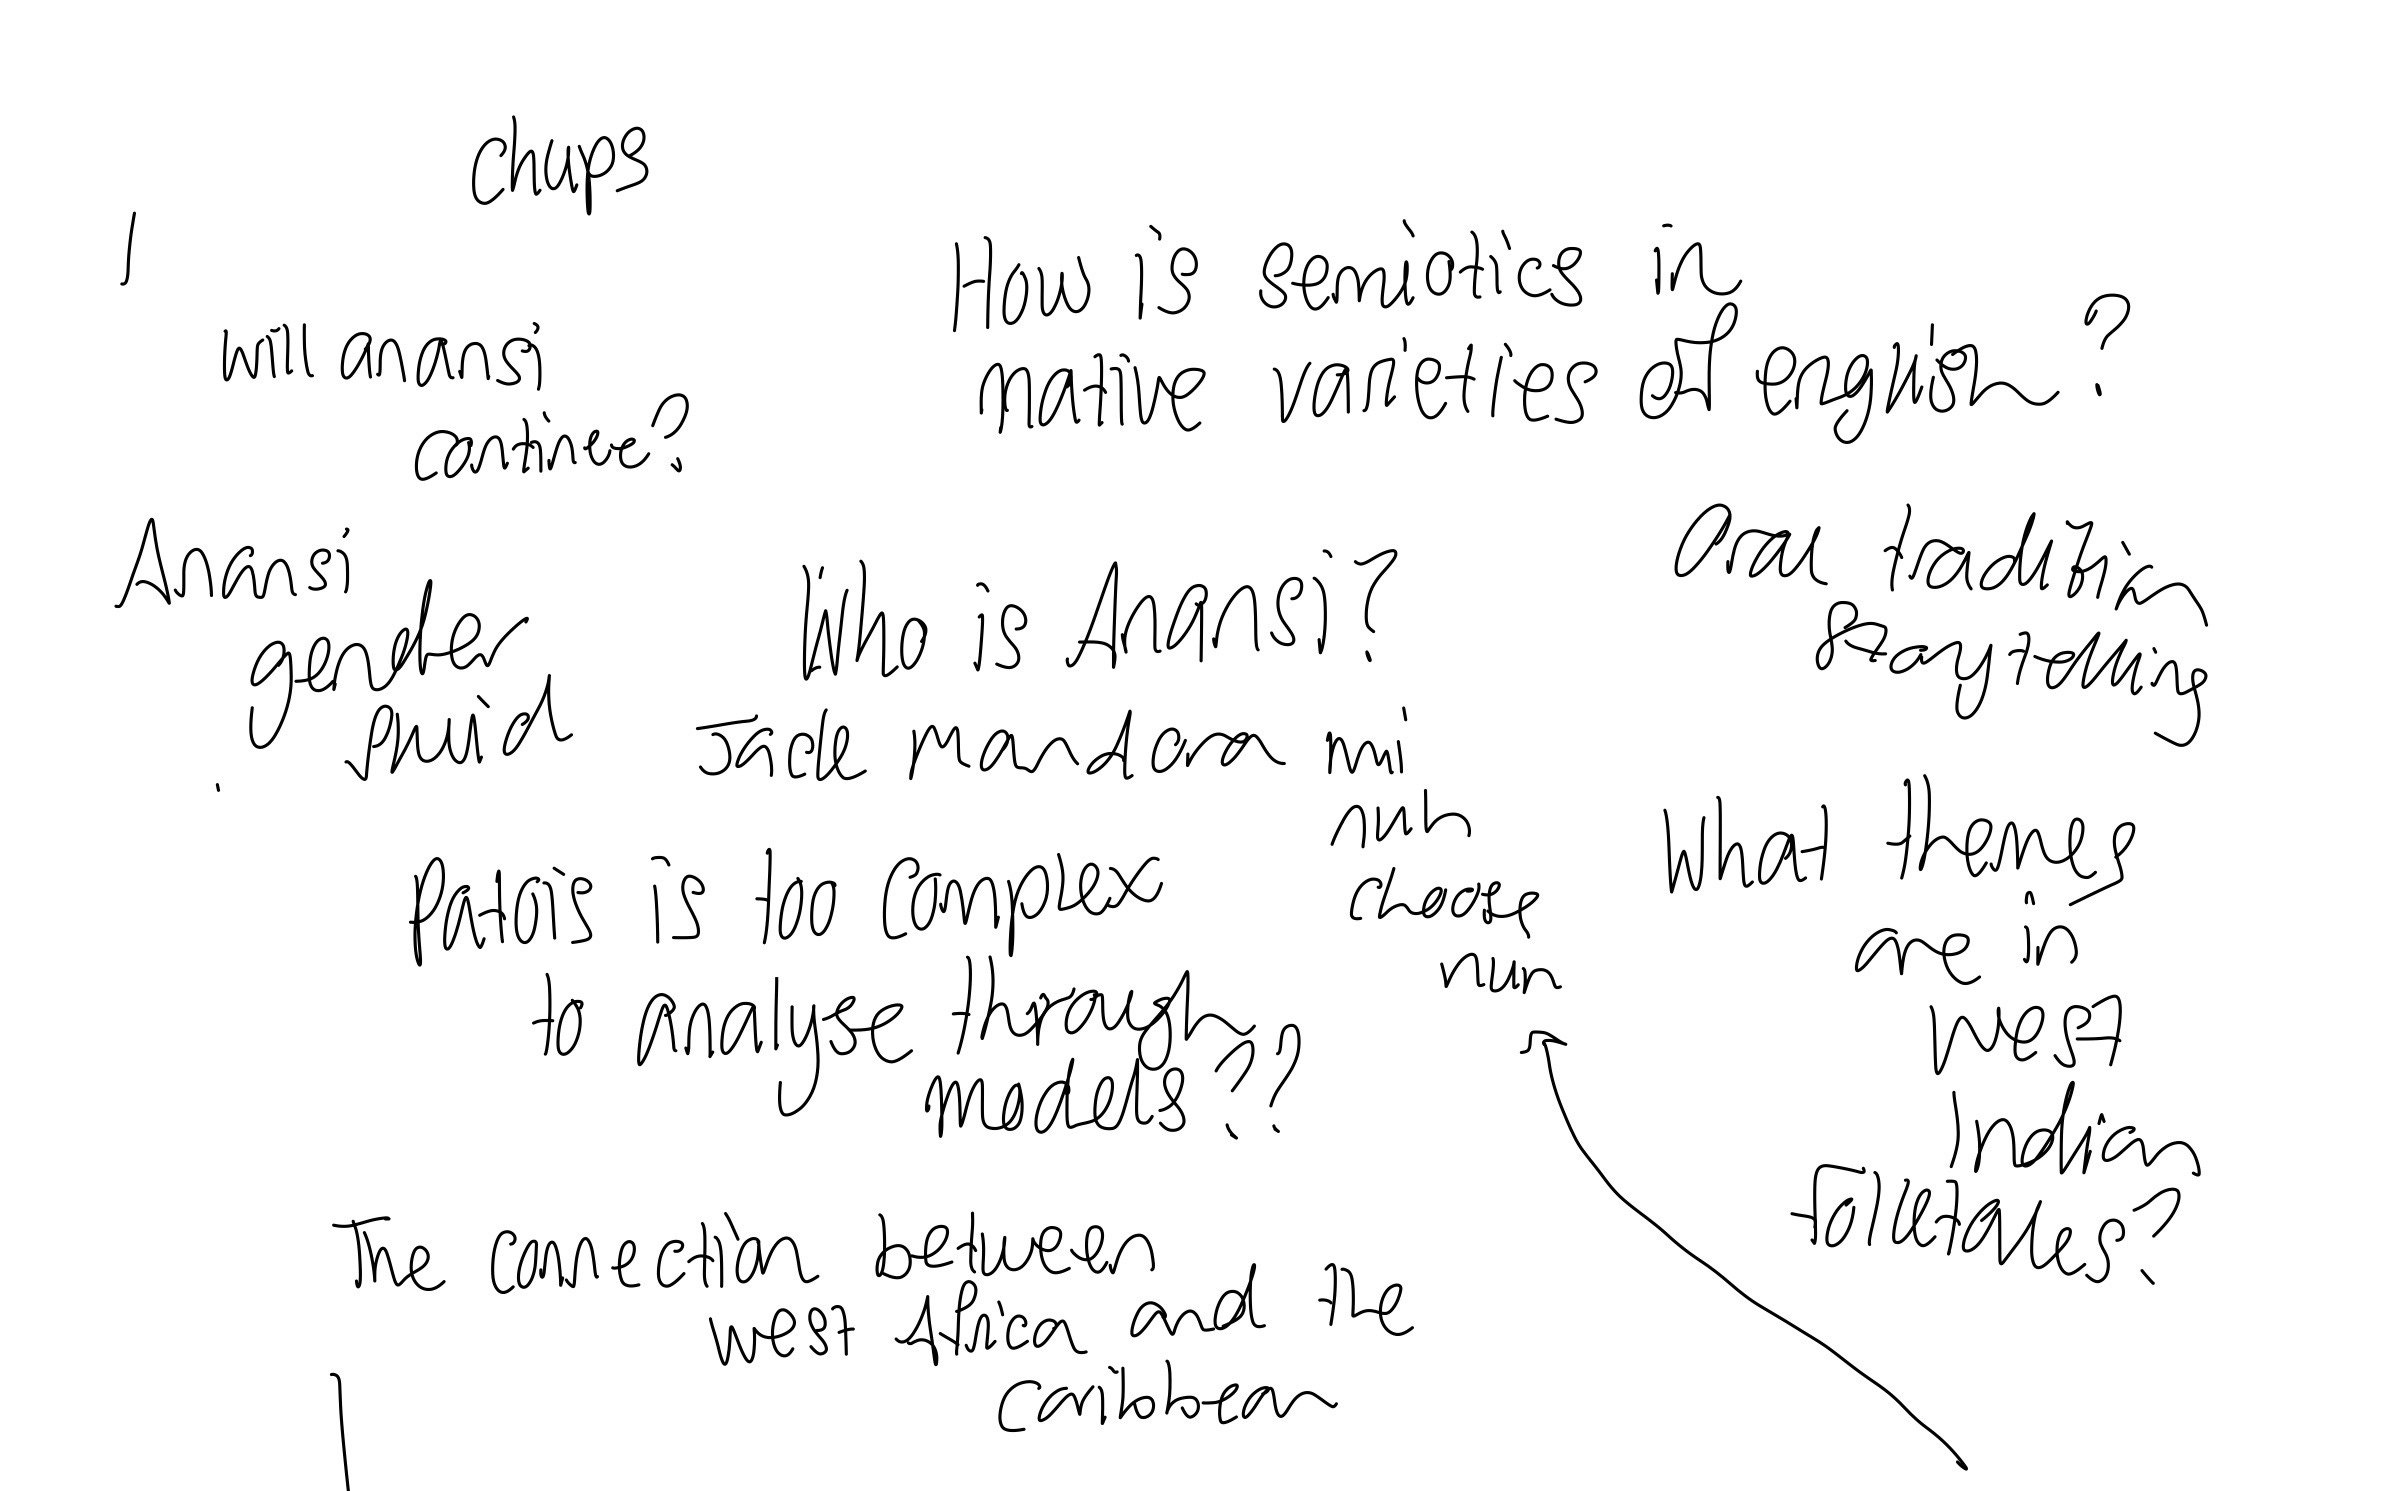 Chups
will anansi
continue?
How is semiotics in
native varieties of english?
Anansi
gender
fluid
Who is Anansi?
Jack mandora mi
nuh
choose
nun
Oral tradition
Story telling
Patois is to complex
to analyse through
models??
What themes
are in
west
Indian
Folktales?
The connection between
west Africa and the
Caribbean